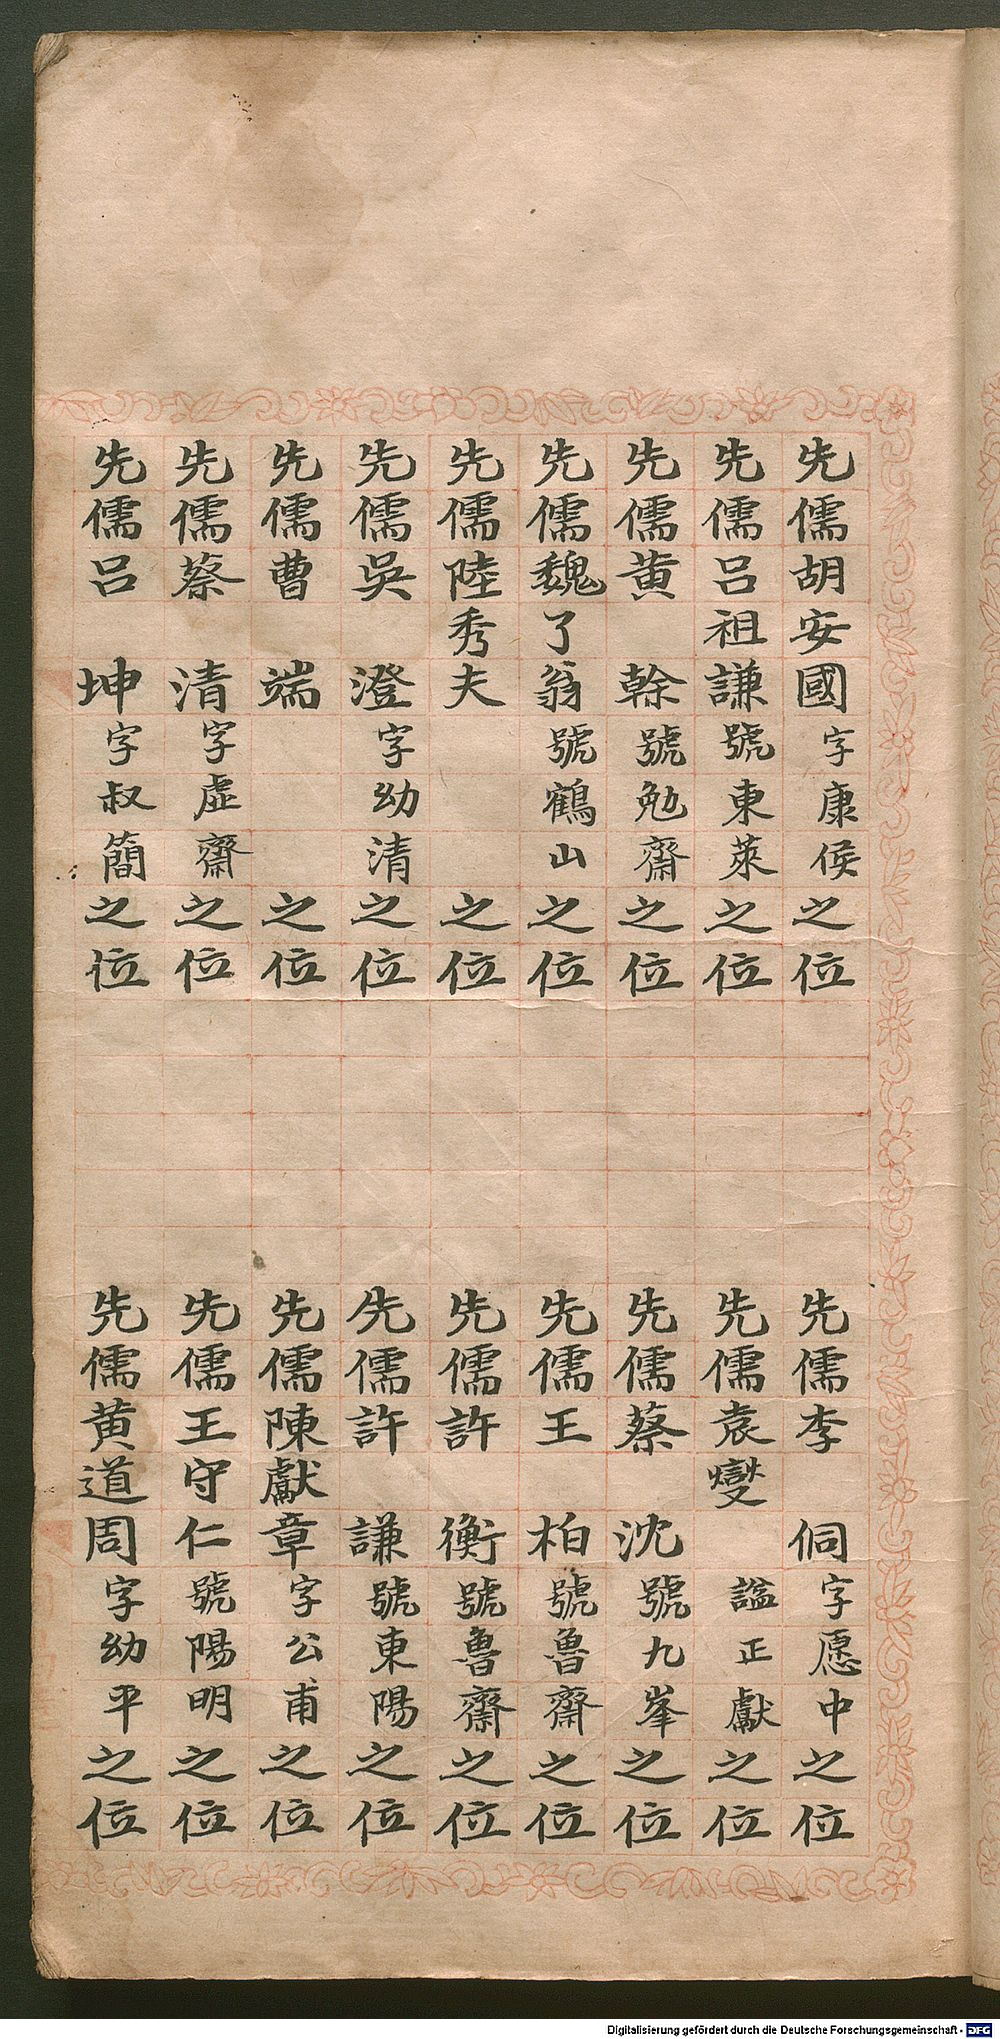 先儒胡安國字康侯之位
先儒呂祖謙號東萊之位
先儒黄榦號勉齋之位
先儒魏了翁號鶴山之位
先儒陸秀夫之位
先儒吳澄字幼清之位
先儒曹端之位
先儒蔡清字虛齋之位
先儒呂坤字叔簡之位
先儒李侗字愿中之位
先儒袁燮諡正獻之位
先儒蔡沈號九峯之位
先儒王柏號魯齋之位
先儒許衡號魯齋之位
先儒許謙號東陽之位
先儒陳獻章字公甫之位
先儒王守仁號陽明之位
先儒黄道周字幼平之位
Digitalisierung gefördert durch die Deutsche Forschungsgemeinschaft - DFG